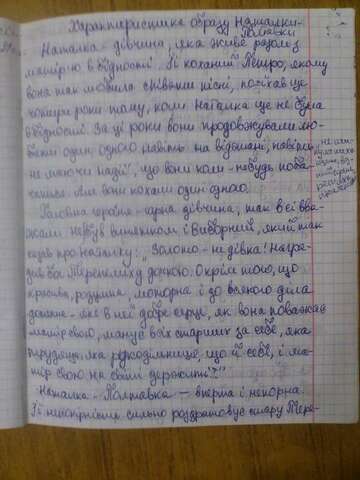 Характеристика образу Наталки-
Полтавки
Наталка - дівчина, яка живе разом з
матір'ю в бідності. Її коханий Петро, якому
вона так любила співати пісні, поїхав ще
чотири роки тому, коли Наталка ще не була
в бідності. За ці роки вони продовжували лю-
бити один одного навіть на відстані, навіть
не маючи надії, що вони коли-небудь поба-
чаться. Але вони кохали один одного.
Головна героїня - гарна дівчина, так її вва-
жали
не був винятком і Виборний, який так
казав про Наталку: „Золото - не дівка! Нагро-
див бог Терпелиху дочкою. Окрім того, що
красива, розумна, моторна і до всякого діла
дотепна - яке в неї добре серце, як вона поважає
матір свою, шанує всіх старших за себе, яка
трудяща, яка рукодільниця, що й себе, і ма-
тір свою на світі держить!"
Наталка - Полтавка — вперта і непокірна.
Її непокірність сильно роздратовує стару Терпе-